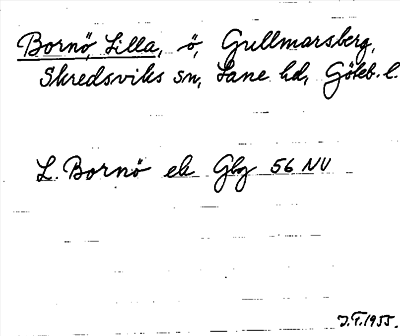 Bornö, Lilla, ö, Gullmarsberg,
Skredsviks sn, Lane hd, Göteb. l.
L. Bornö ek Gbg 56 NV
J.T. 1955.